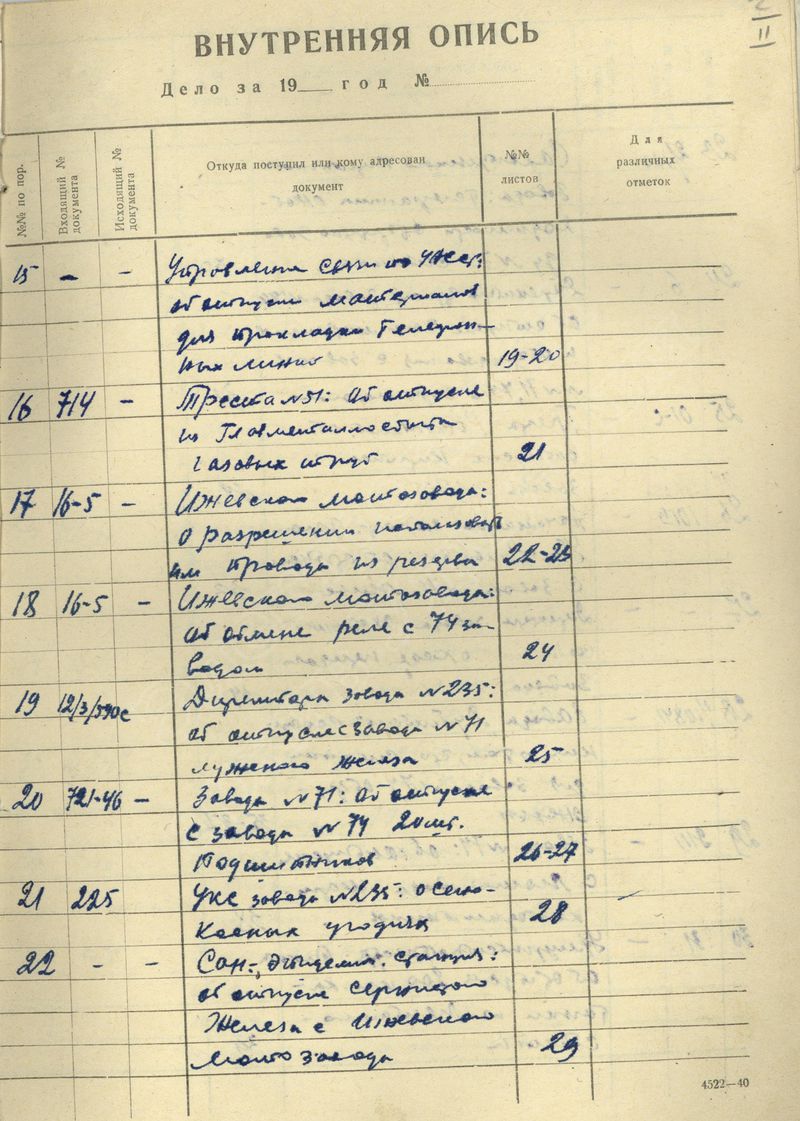 2/II
ВНУТРЕННЯЯ ОПИСЬ
Дело за 19___ год №
№№ по пор.
Входящий № документа
Исходящий № документа
Откуда поступил или кому адресован документ
№№ листов
Для различных отметок
15 - - Управления связи по
об отпуске материалов
для прокладки телефон-
ных линий 19-20
16 714 - Треста №51: Об отпуске
из Главметаллосбыта
газовых труб 21
17 16-5 - Ижевского мотозавода:
о разрешении использовать
им провода из резерва 22-23
18 16-5 - Ижевского мотозавода:
об обмене реле с 74 за-
водом 24
19 12/3/590с Директора завода №235:
об отпуске с завода №71
луженого железа 25
20 721-46 - Завода №71: Об отпуске
с завода №74 20 шт.
подшипников 26-27
21 225 УКС завода №235: о сено-
косных угодиях 28
22 - - Сан-, эпидемич. станция:
об отпуске сернистого
железа с Ижевского
мотозавода 29
4522—40